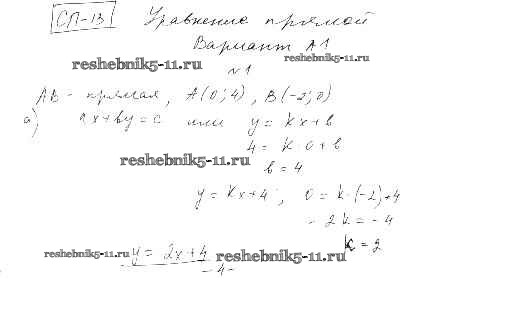 СП-13 Уравнение прямой
Вариант А1
reshebnik5-11.ru reshebnik5-11.ru
№1
АВ - прямая, А(0;4), В(-2;0)
а) ax+by=c или y=kx+b
4=k·0+b
reshebnik5-11.ru
b=4
y=kx+4; 0=k·(-2)+4
-2k=-4
k=2
reshebnik5-11.ru y=2x+4 reshebnik5-11.ru
-4-